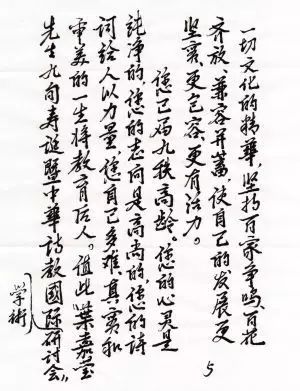 一切文化的精華,坚持百家争鸣,百花
齐放、兼容并蓄,使自己的发展更
坚实、更包容、更有活力。
您已届九秩高龄。您的心灵是
純净的,您的志向是高尚的,您的诗
词给人以力量,您自己多难、真实和
審美的一生将教育后人。值此《葉嘉莹
先生九旬寿诞暨中華诗教國际研讨会》
学術
5